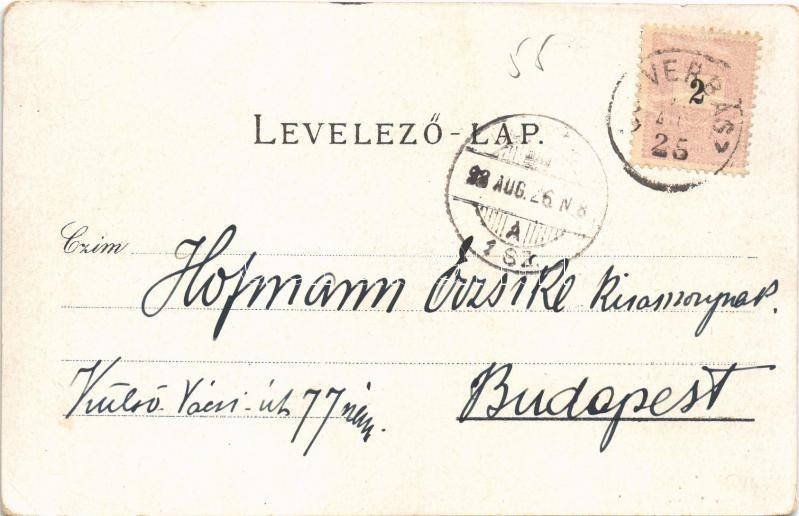 55
2
VERBÁSZ
25
LEVELEZŐ-LAP.
98 AUG. 26. N 8
A
1 SZ.
Czim
Hofmann Erzsike Kisasszonynak.
Külső Váczi-út 77 szám.
Budapest